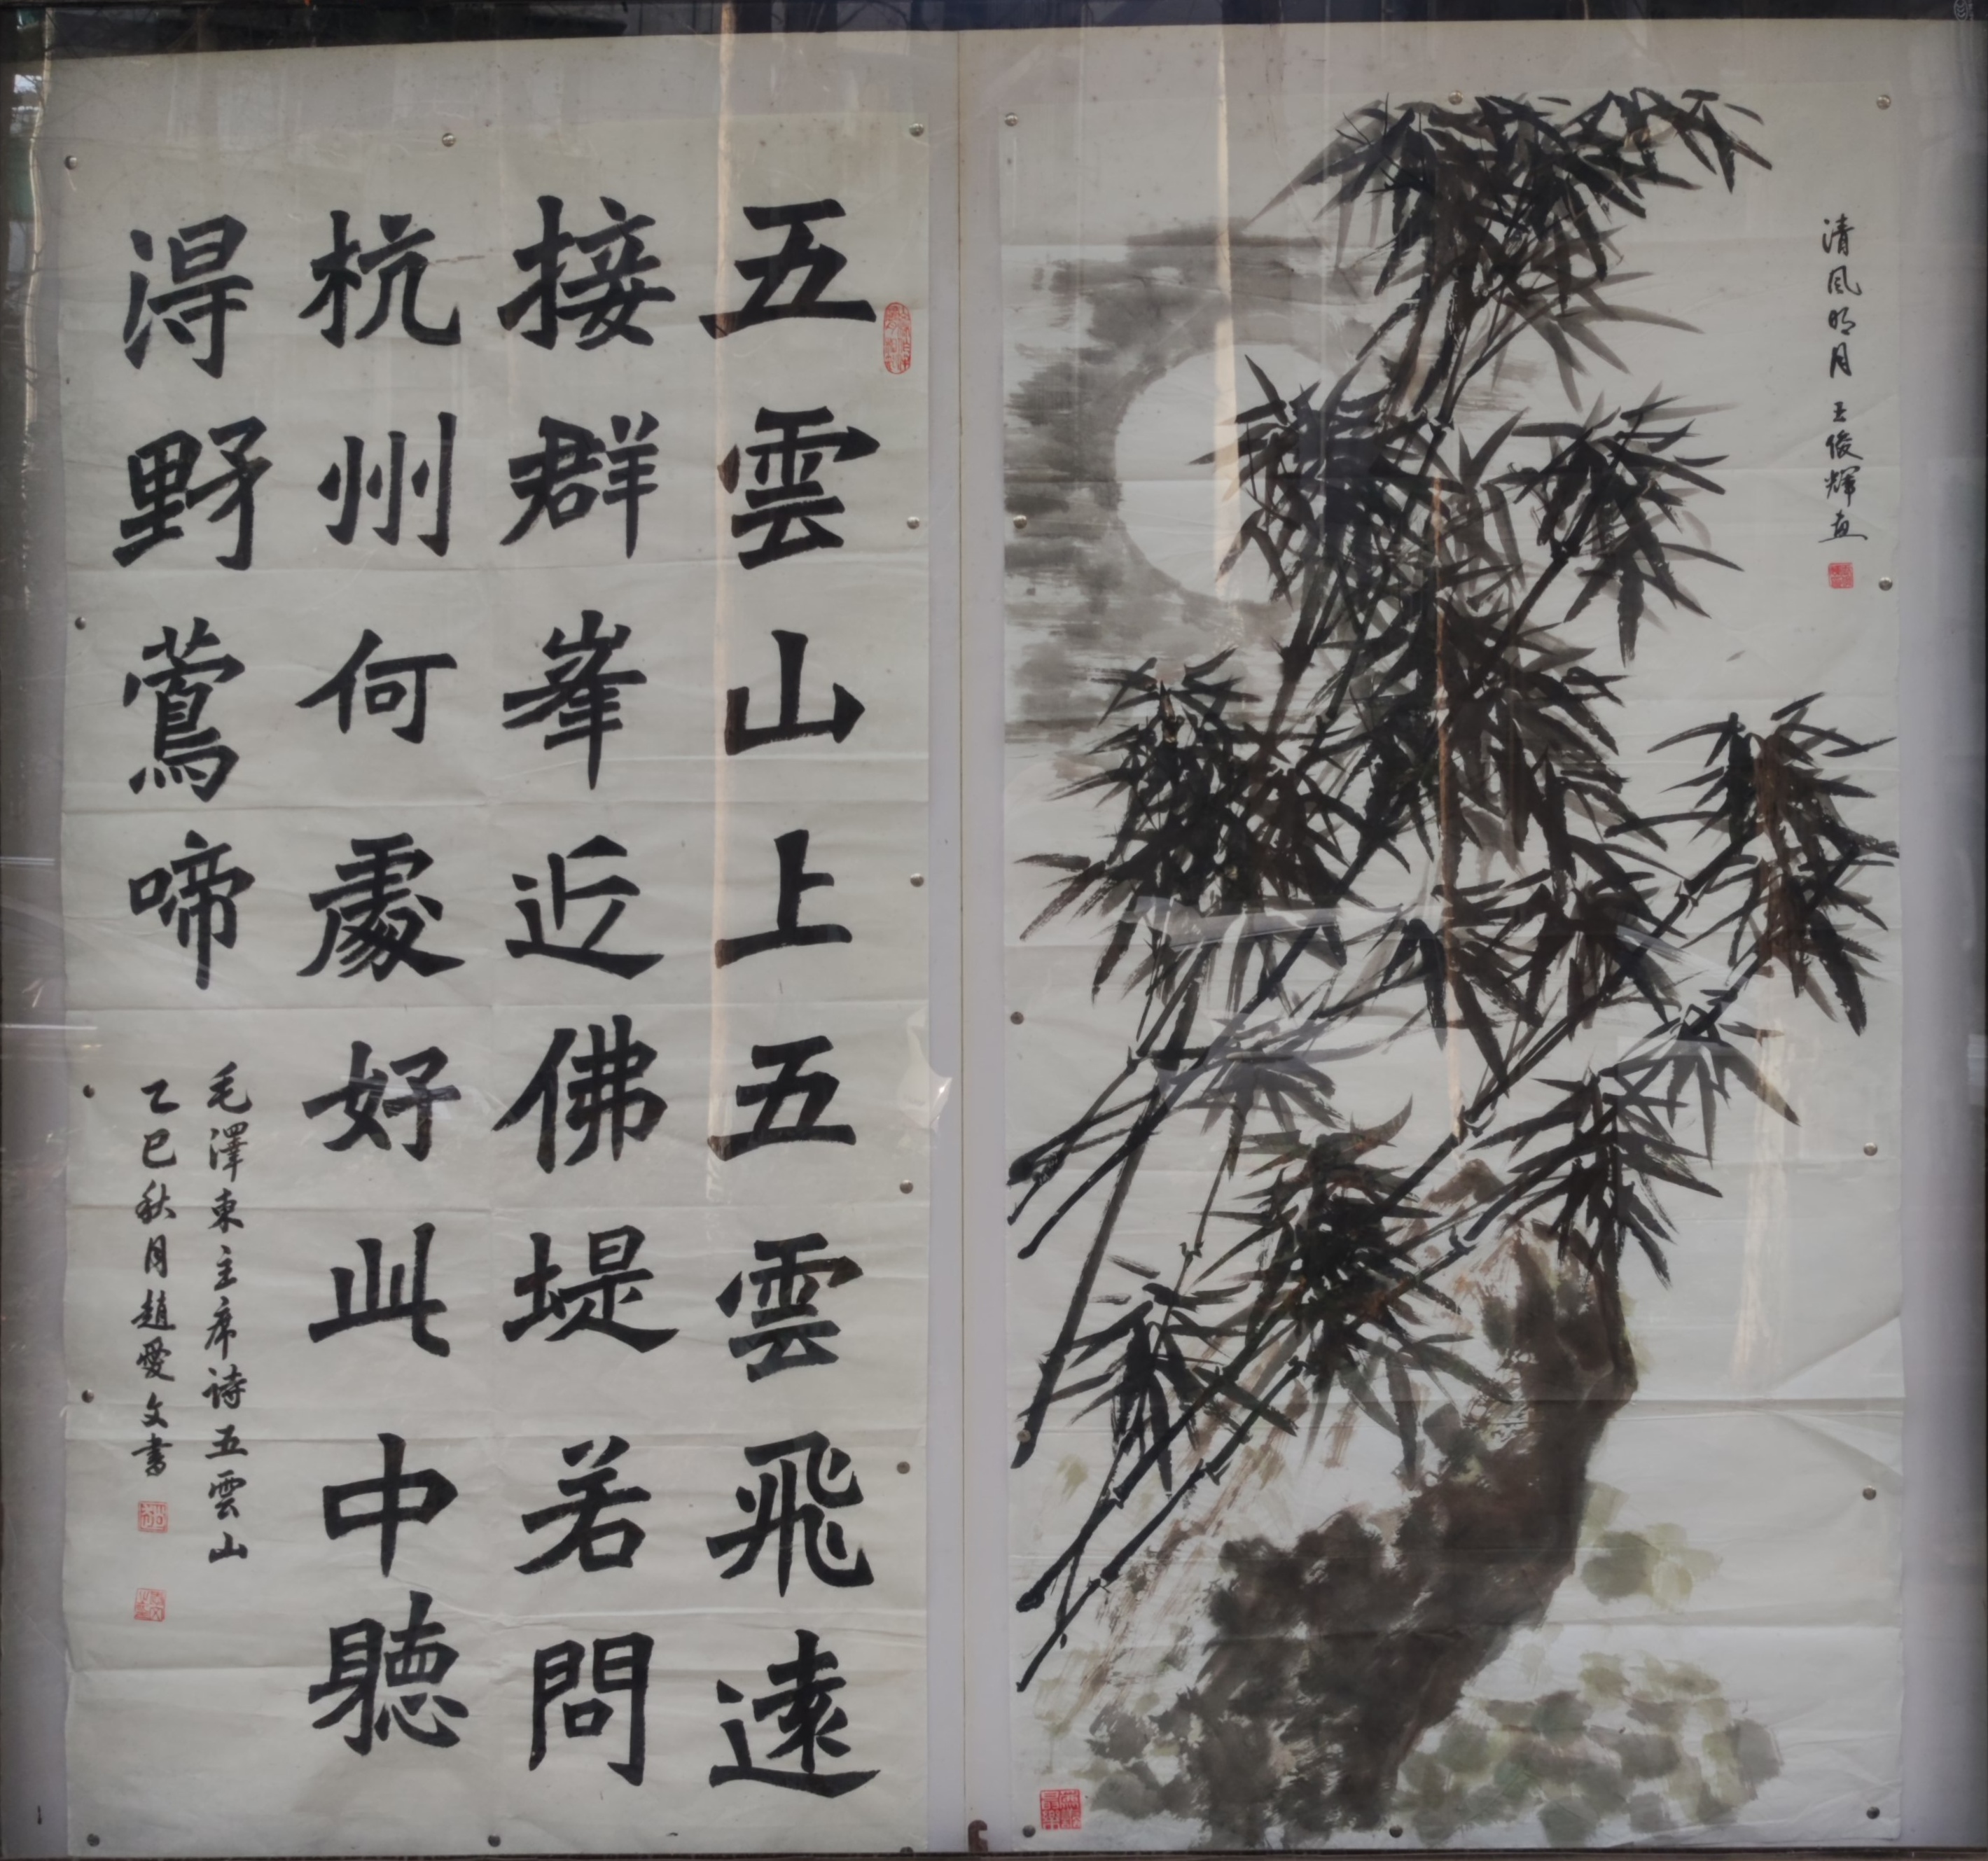 清風明月 王俊輝畫
五雲山上五雲飛遠
接群峯近佛堤若問
杭州何處好此中聽
淂野鶯啼
毛澤東主席诗五雲山
乙巳秋月趙愛文書